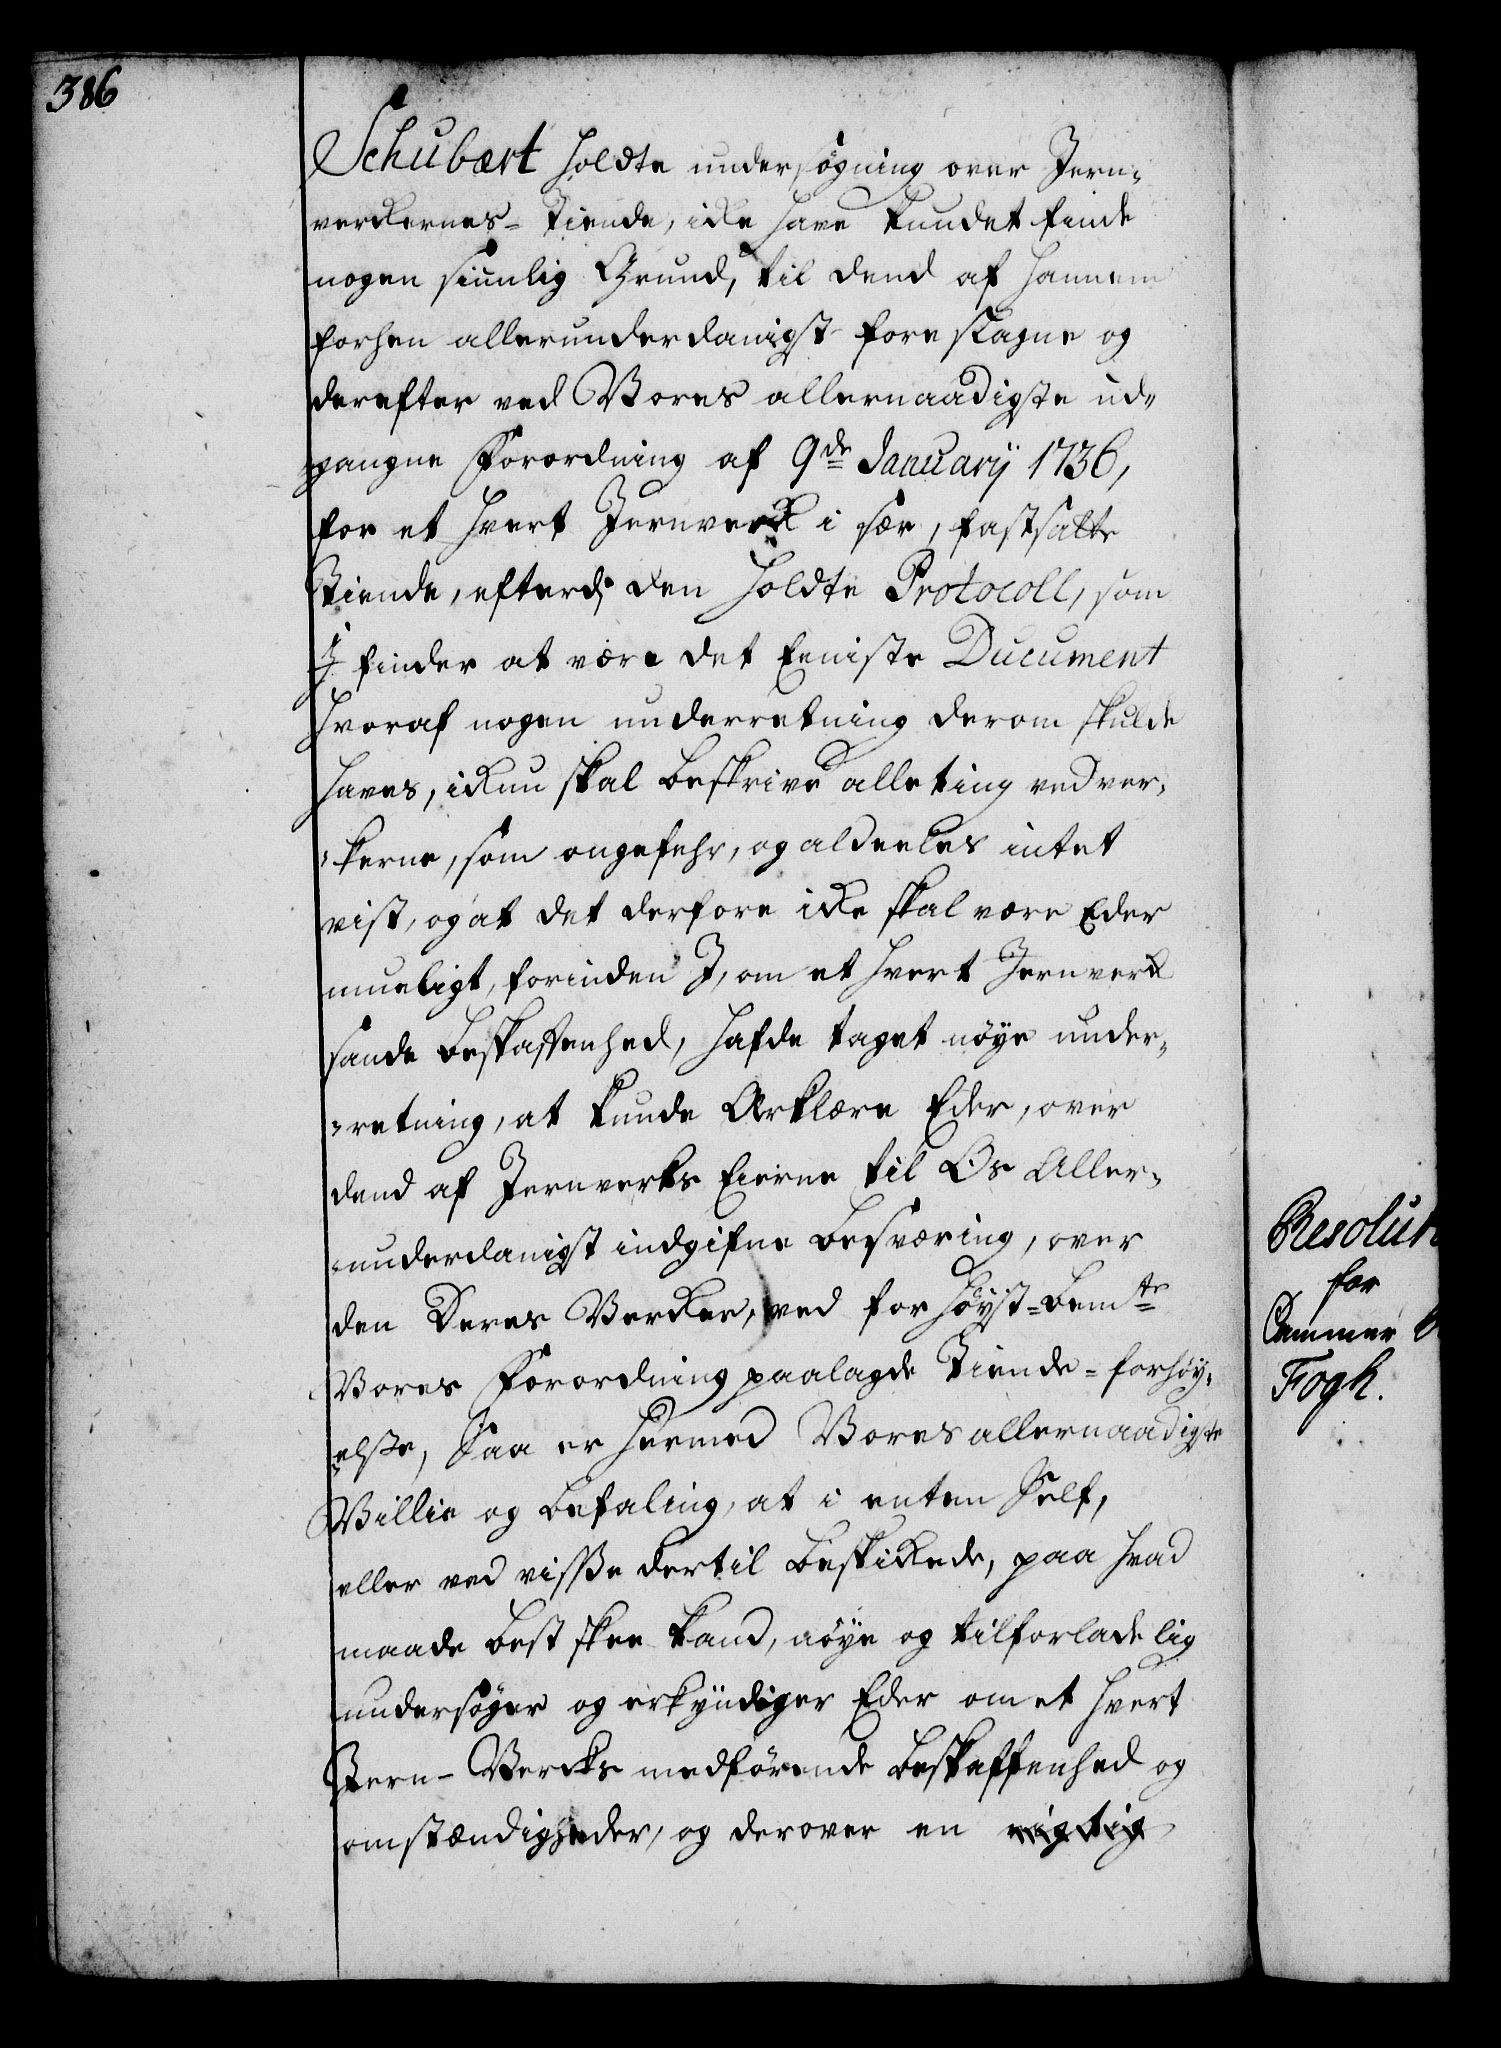 386
Schubært holdte undersøgning over Jern-
verckernes-Tiende, icke have kundet finde
nogen siunlig Grund, til dend af hannem
forhen allerunderdanigst foreslagne og
derefter ved Vores allernaadigste ud-
gangne Forordning af 9de January 1736,
for et hvert Jernverck i sær, fastsatte
Tiende, efterdi den holdte Protocoll, som
I finder at være det Eeniste Ducument
hvoraf nogen underretning derom skulde
haves, ickun skal beskrive alleting ved ver-
kerne, som ongefehr, og aldeeles intet
vist, og at det derfore icke skal være Eder
mueligt, forinden I, om et hvert Jernverck
sande beskaffenhed, hafde taget nøye under-
retning, at kunde Erklære Eder, over
dend af Jernverks Eierne til Os Aller-
underdanigst indgifne besværing, over
den Deres Vercker, ved for høyst-bemte
Vores Forordning paalagde Tiende-forhøy-
else, Saa er hermed Vores allernaadigste
Villie og befaling, at i enten Self,
eller ved visse dertil beskickede, paa hvad
maade best skee kand, nøye og tilforladelig
undersøger og erkyndiger Eder om et hvert
Jern-Vercks medførende beskaffenhed og
omstændigheder, og derover en rigtig
Resolut
for
Cammer
Fogh.